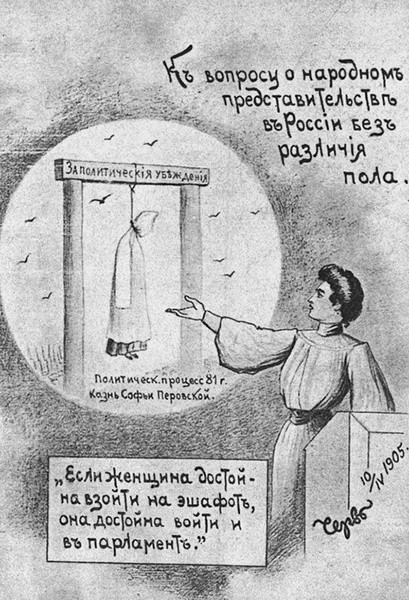 Къ вопросу о народномъ
представительствѣ
въ Россіи безъ
различія
пола.
За политическія убѣжденія
Политическ. процесс 81 г.
Казнь Софьи Перовской.
„Если женщина достой-
на взойти на эшафотъ,
она достойна войти и
въ парламентъ.”
10/IV 1905.
Червь